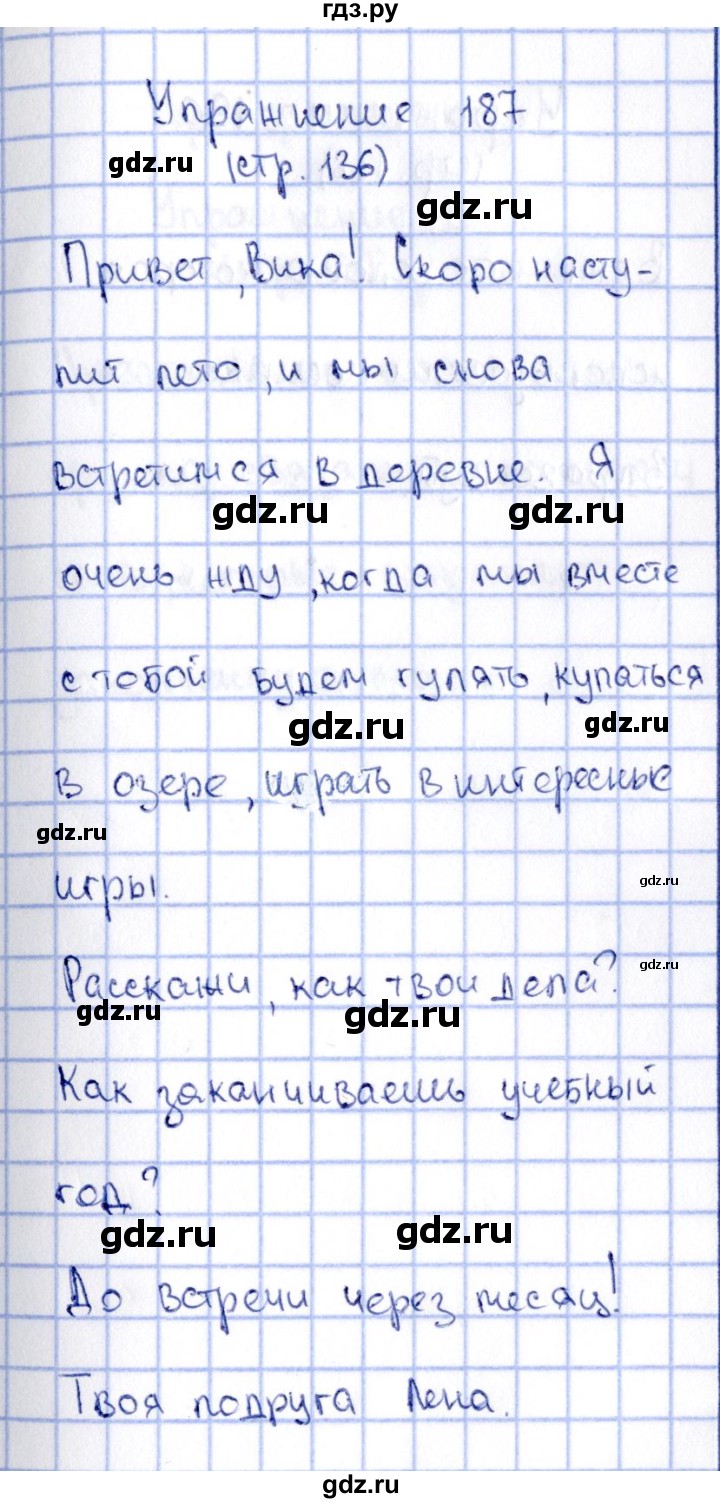 гдз.ру
Упражнение 187
gdz.ru (стр. 136)
gdz.ru
Привет, Вика! Скоро насту-
пит лето, и мы снова
встретимся в деревне. Я
gdz.ru gdz.ru
очень жду, когда мы вместе
с тобой будем гулять, купаться
gdz.ru gdz.ru
в озере, играть в интересные
gdz.ru
игры.
gdz.ru
Расскажи, как твои дела?
gdz.ru
gdz.ru gdz.ru
Как заканчиваешь учебный
год?
gdz.ru gdz.ru
До встречи через месяц!
Твоя подруга Лена.
gdz.ru